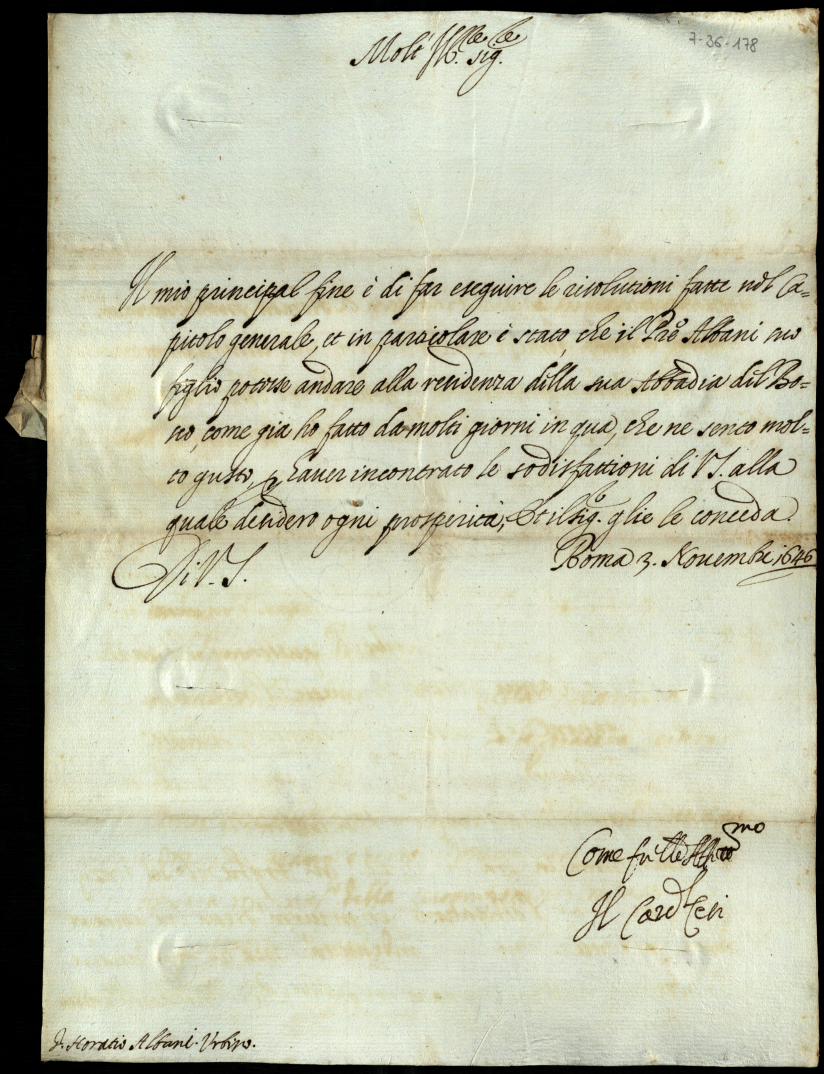 7-36-178
Molt' Ill.re Sig.re
Il mio principal fine è di far eseguire le risolutioni fatte nel Ca=
pitolo generale, et in particolare è stato, che il Pre' Albani suo
figlio potesse andare alla residenza della sua Abbadia del Bo=
sco, come già ho fatto da molti giorni in quà, che ne sento mol=
to gusto, p haver incontrato le sodisfattioni di V.S. alla
quale desidero ogni prosperità, Et il Sig.re glie le conceda.
Roma 3. Novembre 1646
Di V. S.
Come fr'llo Aff.mo
Il Card.l
S. Horatio Albani. Urbino.